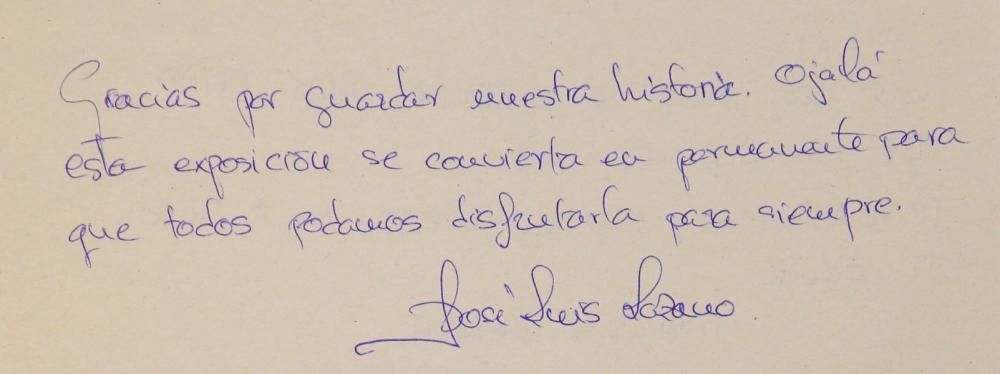 Gracias por guardar nuestra historia. Ojalá
esta exposición se convierta en permanente para
que todos podamos disfrutarla para siempre.
José Luis Lozano